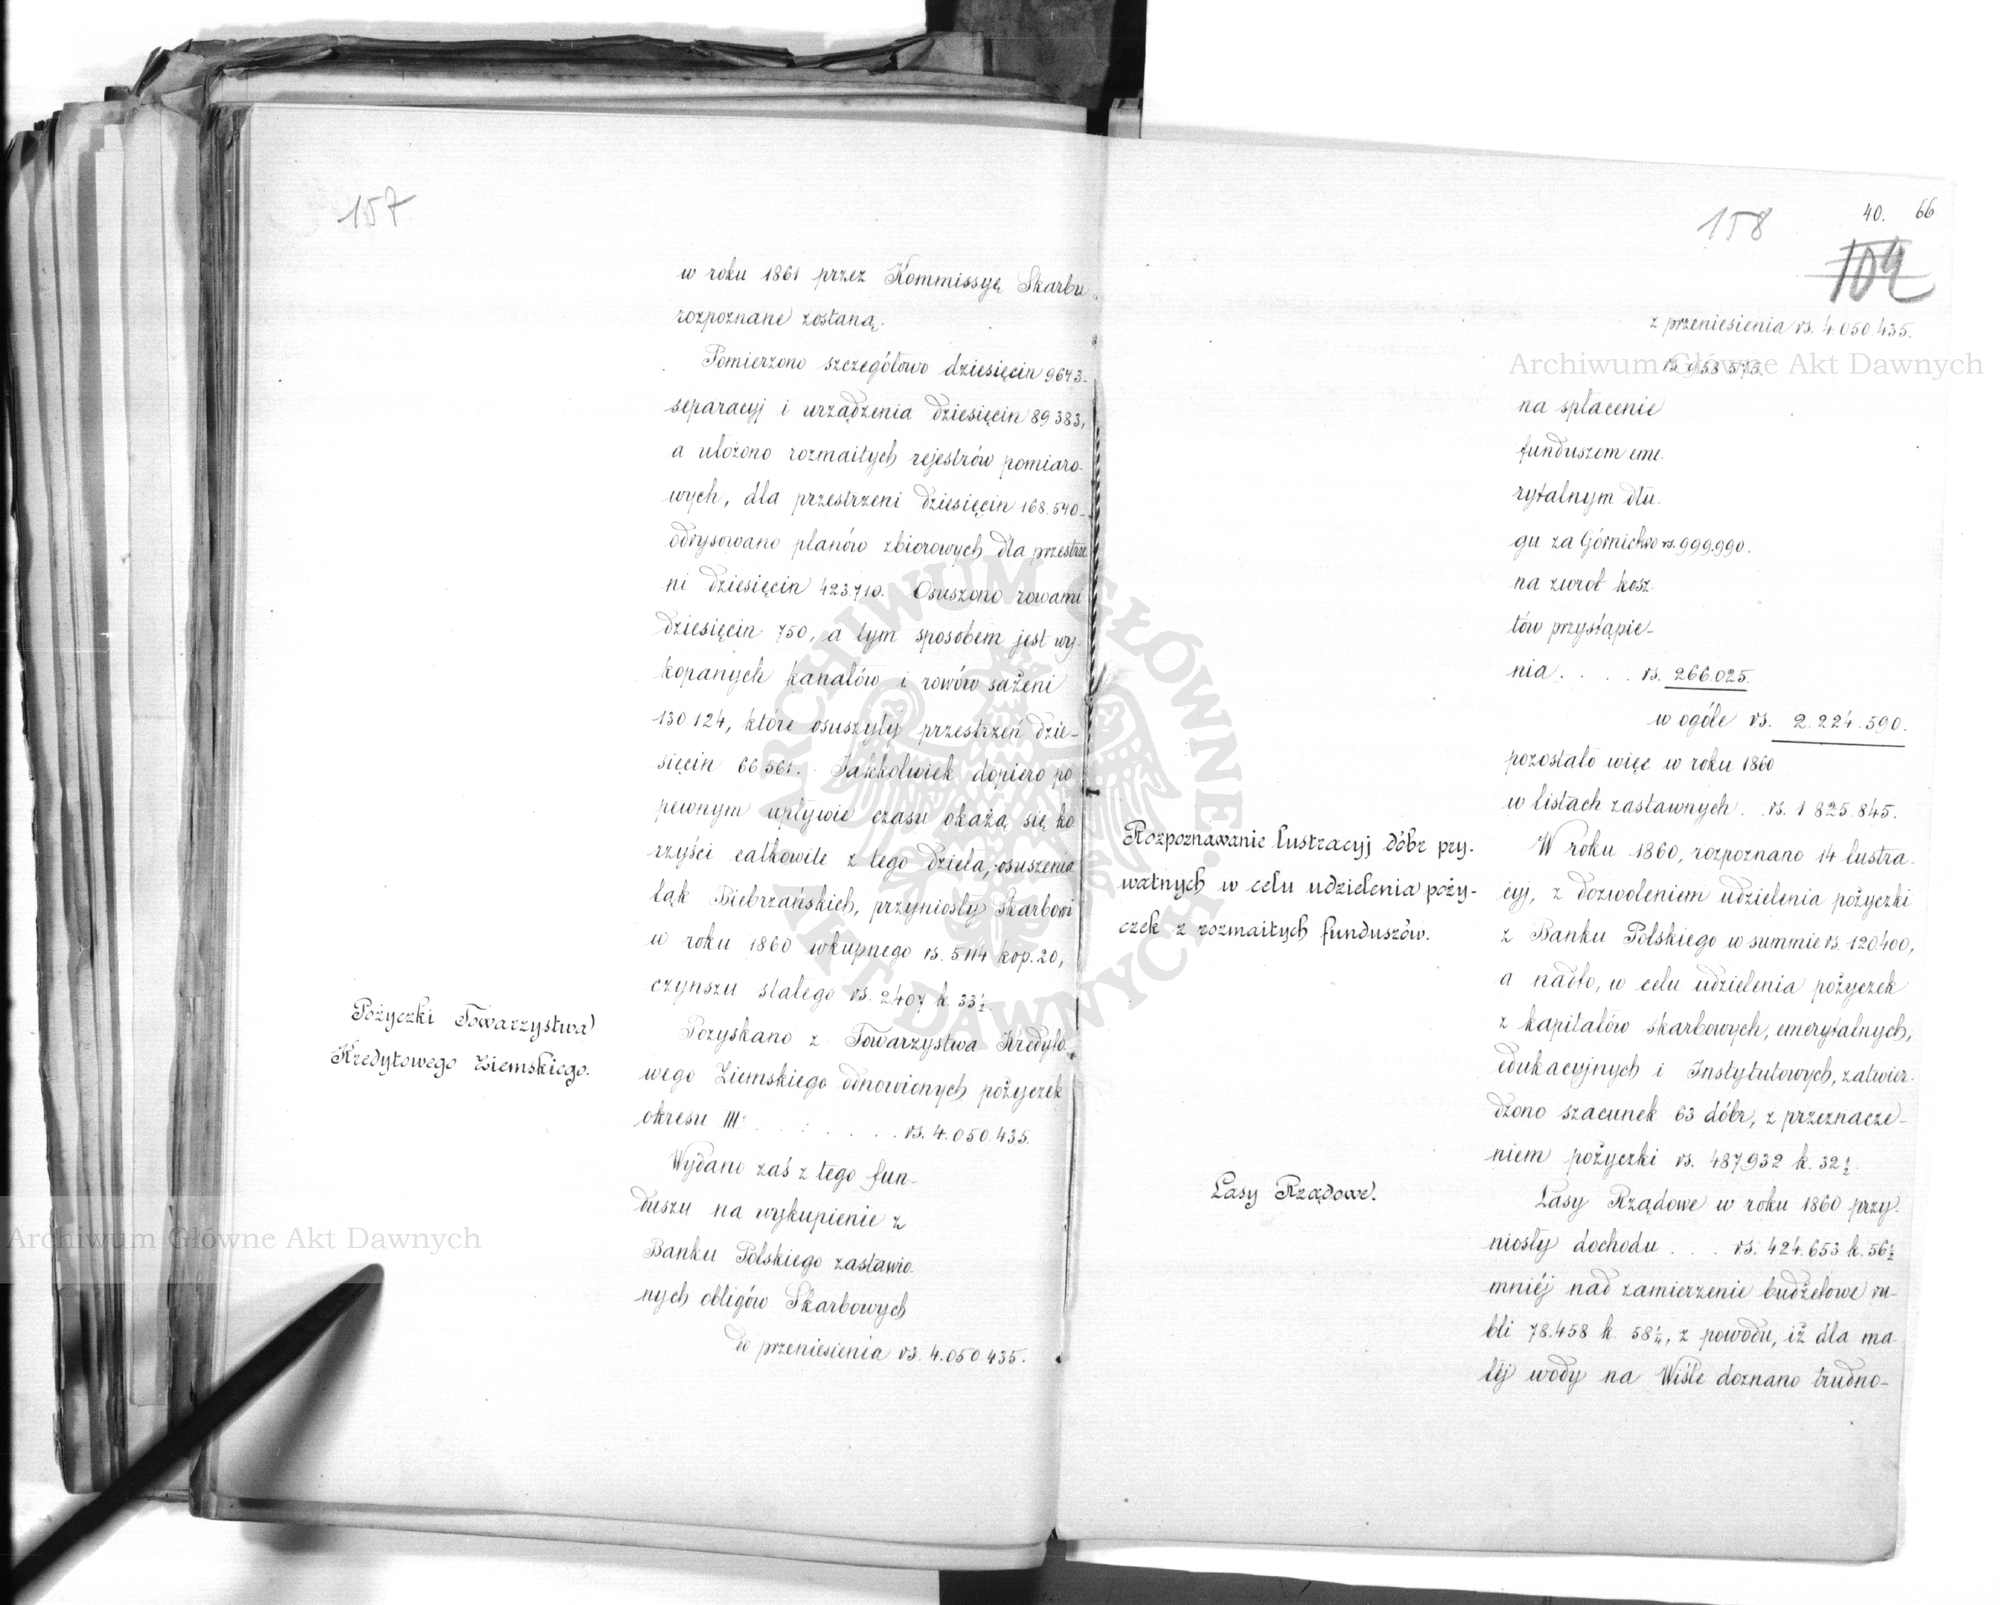 157
w roku 1861 przez Kommissyę Skarbu
rozpoznane zostaną.
Pomierzono szczegółowo dziesięcin 9643-
separacyj i urządzenia dziesięcin 89383,
a ułożono rozmaitych rejestrów pomiaro-
wych, dla przestrzeni dziesięcin 168.540-
odrysowano planów zbiorowych dla przestrze
ni dziesięcin 423.710. Osuszono rowami
dziesięcin 750, a tym sposobem jest wy-
kopanych kanałów i rowów sażeni
130.124, które osuszyły przestrzeń dzie-
sięcin 66.561. Jakkolwiek dopiero po
pewnym upływie czasu okażą się ko
rzyści całkowite z tego dzieła, osuszenia
łąk Biebrzańskich, przyniosły Skarbowi
w roku 1860 wkupnego rs. 5114 kop. 20,
czynszu stałego rs. 2407 k. 33½.
Pożyczki Towarzystwa
Kredytowego Ziemskiego.
Pozyskano z Towarzystwa Kredyto
wego Ziemskiego odnowionych pożyczek
okresu III° . . . . . . . rs. 4.050.435.
Wydano zaś z tego fun-
duszu na wykupienie z
Banku Polskiego zastawio-
nych obligów Skarbowych
do przeniesienia rs. 4.050.435.
158
40. 66
104
z przeniesienia rs. 4.050.435.
rs. 958.575.
na spłacenie
funduszem eme-
rytalnym dłu-
gu za Górnictwo rs. 999.990.
na zwrot kosz-
tów przystąpie-
nia . . . . rs. 266.025.
w ogóle rs. 2.224.590.
pozostało więc w roku 1860
w listach zastawnych . rs. 1 825.845.
Rozpoznawanie lustracyj dóbr pry-
watnych w celu udzielenia poży-
czek z rozmaitych funduszów.
W roku 1860, rozpoznano 14 lustra-
cyj, z dozwoleniem udzielenia pożyczki
z Banku Polskiego w summie rs. 120400,
a nadto, w celu udzielenia pożyczek
z kapitałów skarbowych, emerytalnych,
edukacyjnych i Instytutowych, zatwier-
dzono szacunek 63 dóbr, z przeznacze-
niem pożyczki rs. 487.932 k. 32½.
Lasy Rządowe.
Lasy Rządowe w roku 1860 przy-
niosły dochodu . . . rs. 424.653 k. 56½
mniéj nad zamierzenie budżetowe ru-
bli 78.458 k. 58½, z powodu, iż dla ma
łéj wody na Wiśle doznano trudno-
Archiwum Główne Akt Dawnych
Archiwum Główne Akt Dawnych
ARCHIWUM GŁÓWNE AKT DAWNYCH